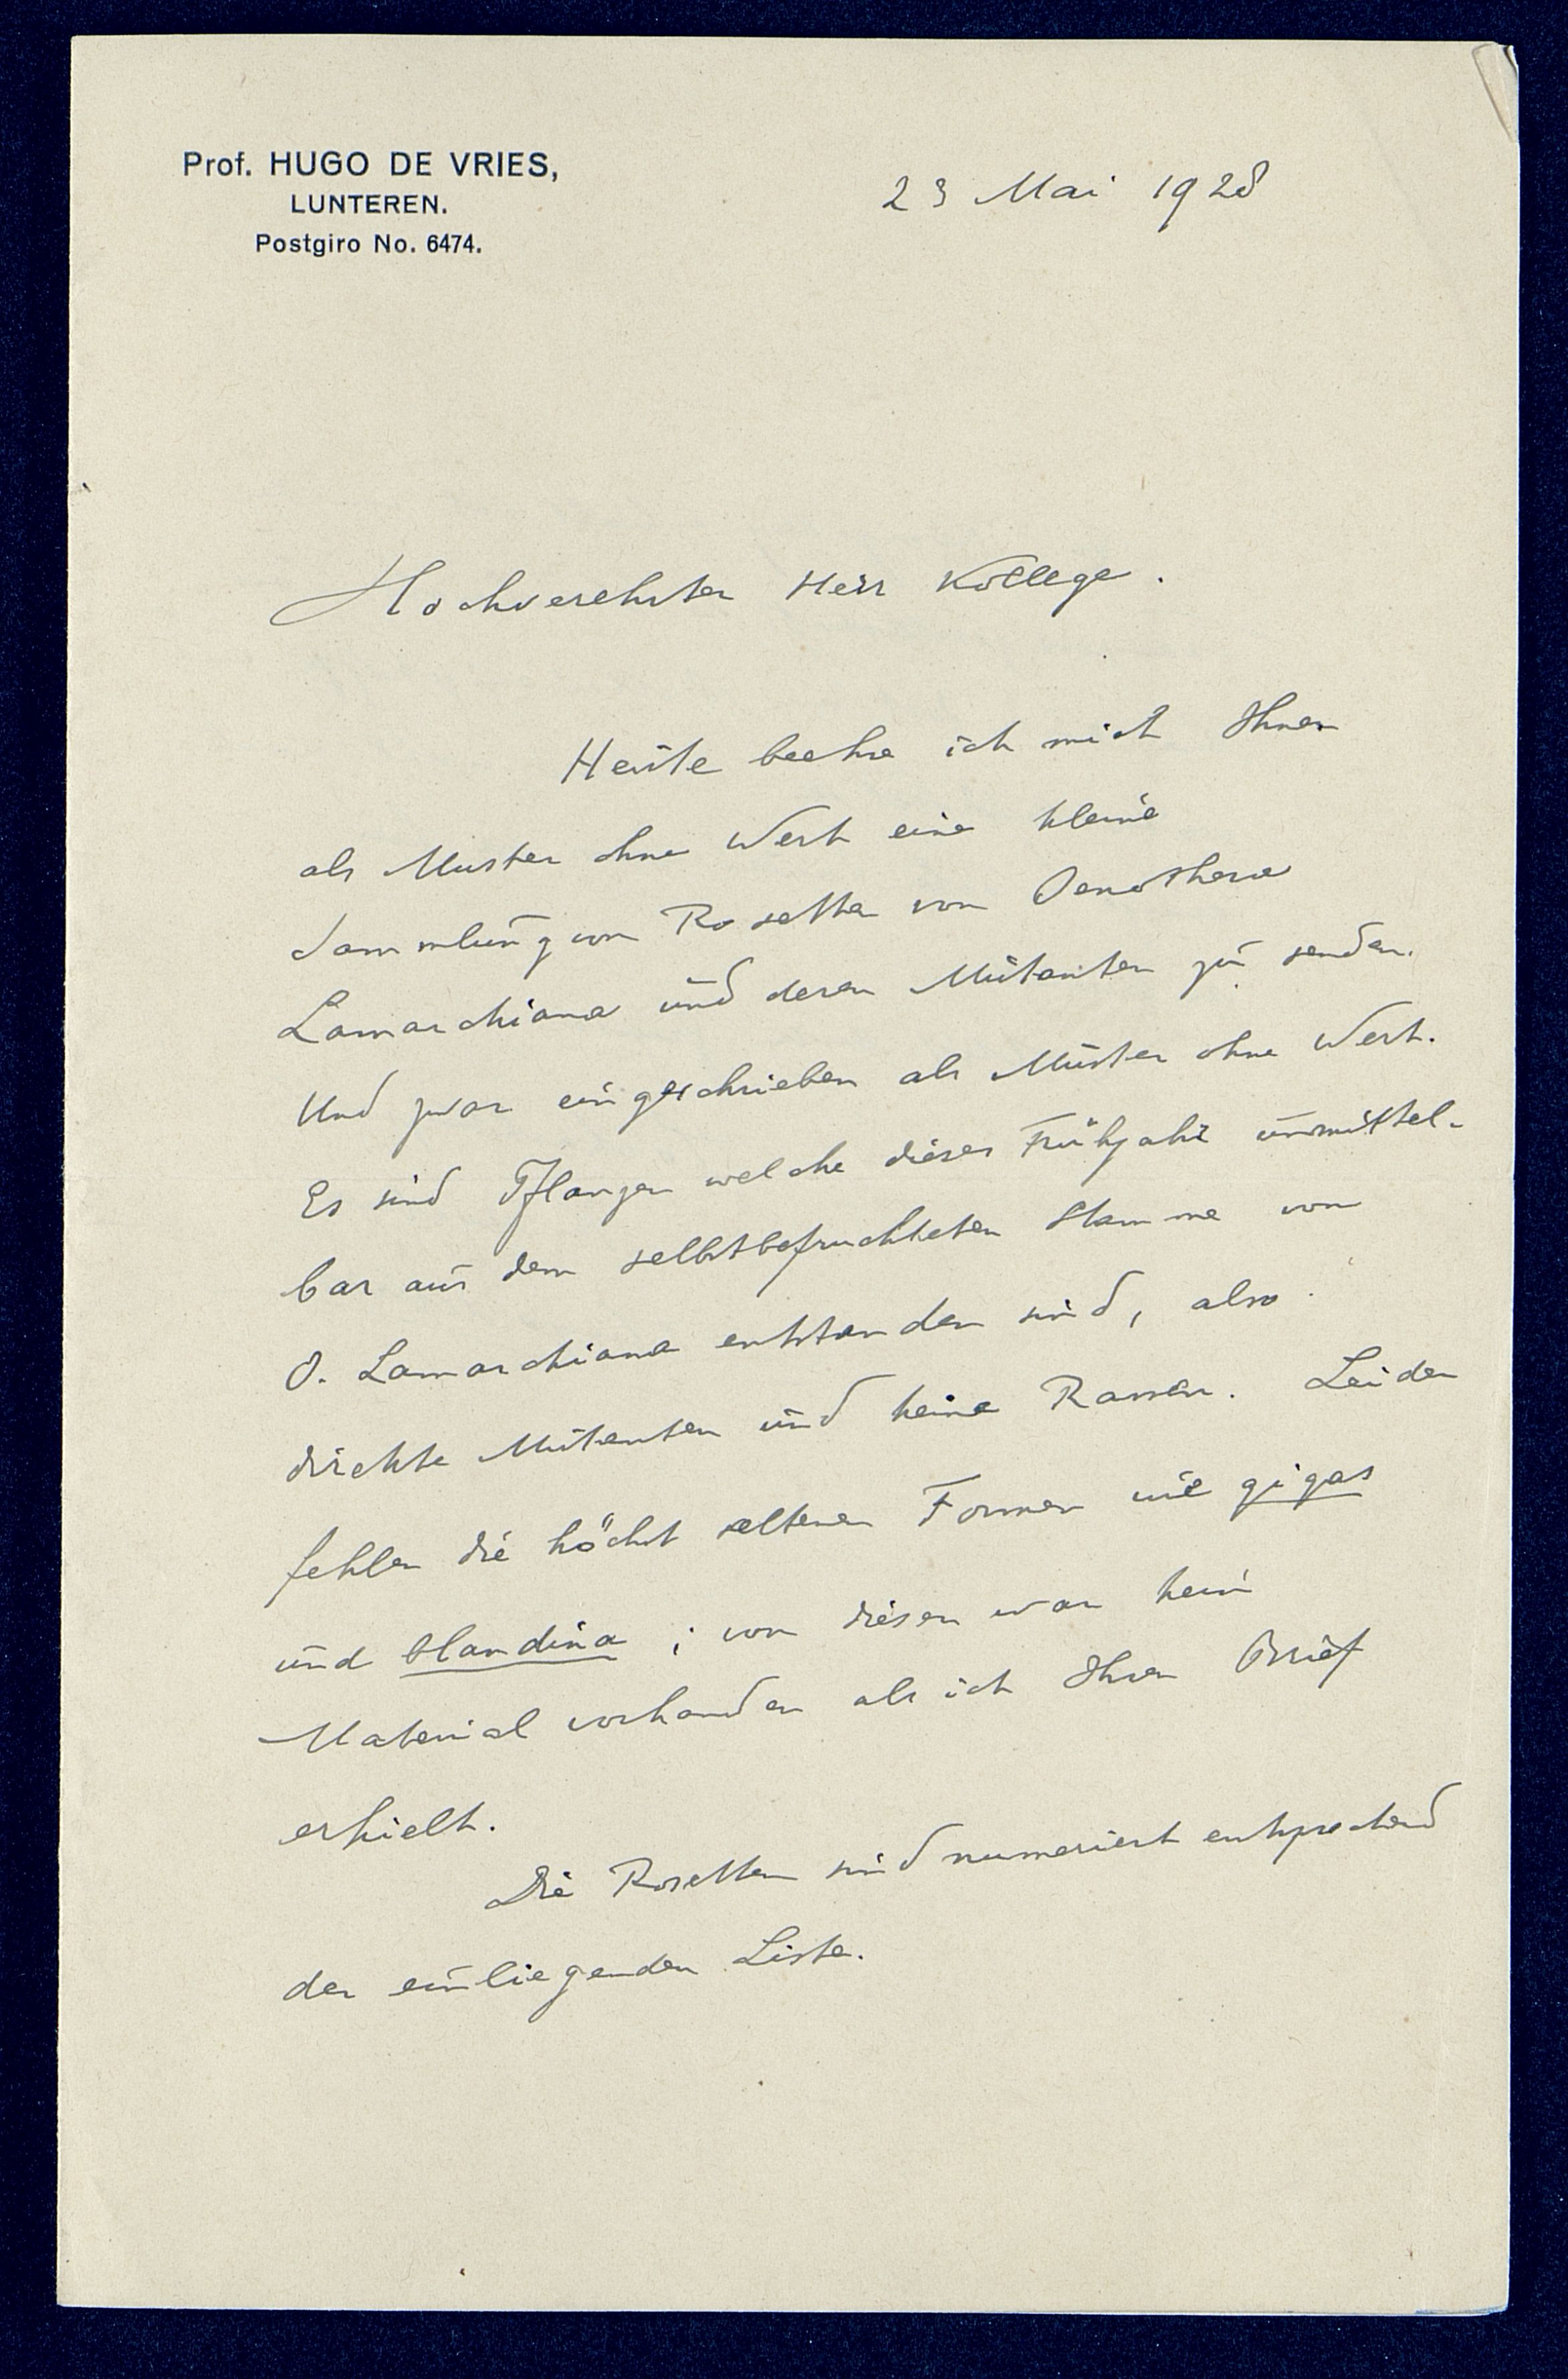 Prof. HUGO DE VRIES,
LUNTEREN.
Postgiro No. 6474.
23 Mai 1928
Hochverehrter Herr Kollege.
Heute beehre ich mich Ihnen
als Muster ohne Wert eine kleine
Sammlung von Rosetten von Oenothera
Lamarckiana und deren Mutanten zu senden.
Und zwar eingeschrieben als Muster ohne Wert.
Es sind Pflanzen welche dieses Frühjahr unmittel-
bar aus dem selbstbefruchteten Stamme von
O. Lamarckiana entstanden sind, also
direkte Mutanten und keine Rassen. Leider
fehlen die höchst seltenen Formen wie gigas
und blandina ; von diesen war kein
Material vorhanden als ich Ihren Brief
erhielt.
Die Rosetten sind numeriert entsprechend
der einliegenden Liste.